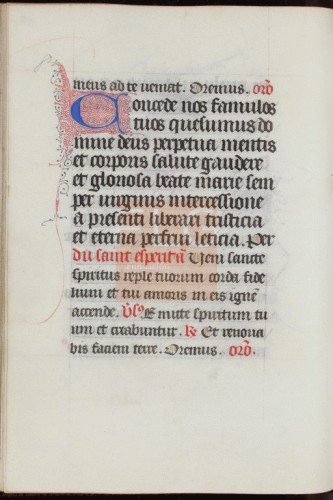 meus ad te veniat. Oremus. orõ
Concede nos famulos
tuos quesumus do
mine deus perpetua mentis
et corporis salute gaudere
et gloriosa beate marie sem
per virginis intercessione
a presenti liberari tristicia
et eterna perfrui leticia. Per
Du saint esperit ã Veni sancte
spiritus reple tuorum corda fide
lium et tui amoris in eis ignẽ
accende. V̾s. Emitte spiritum tu
um et creabuntur. R̾ Et renova
bis faciem terre. Oremus. orõ.